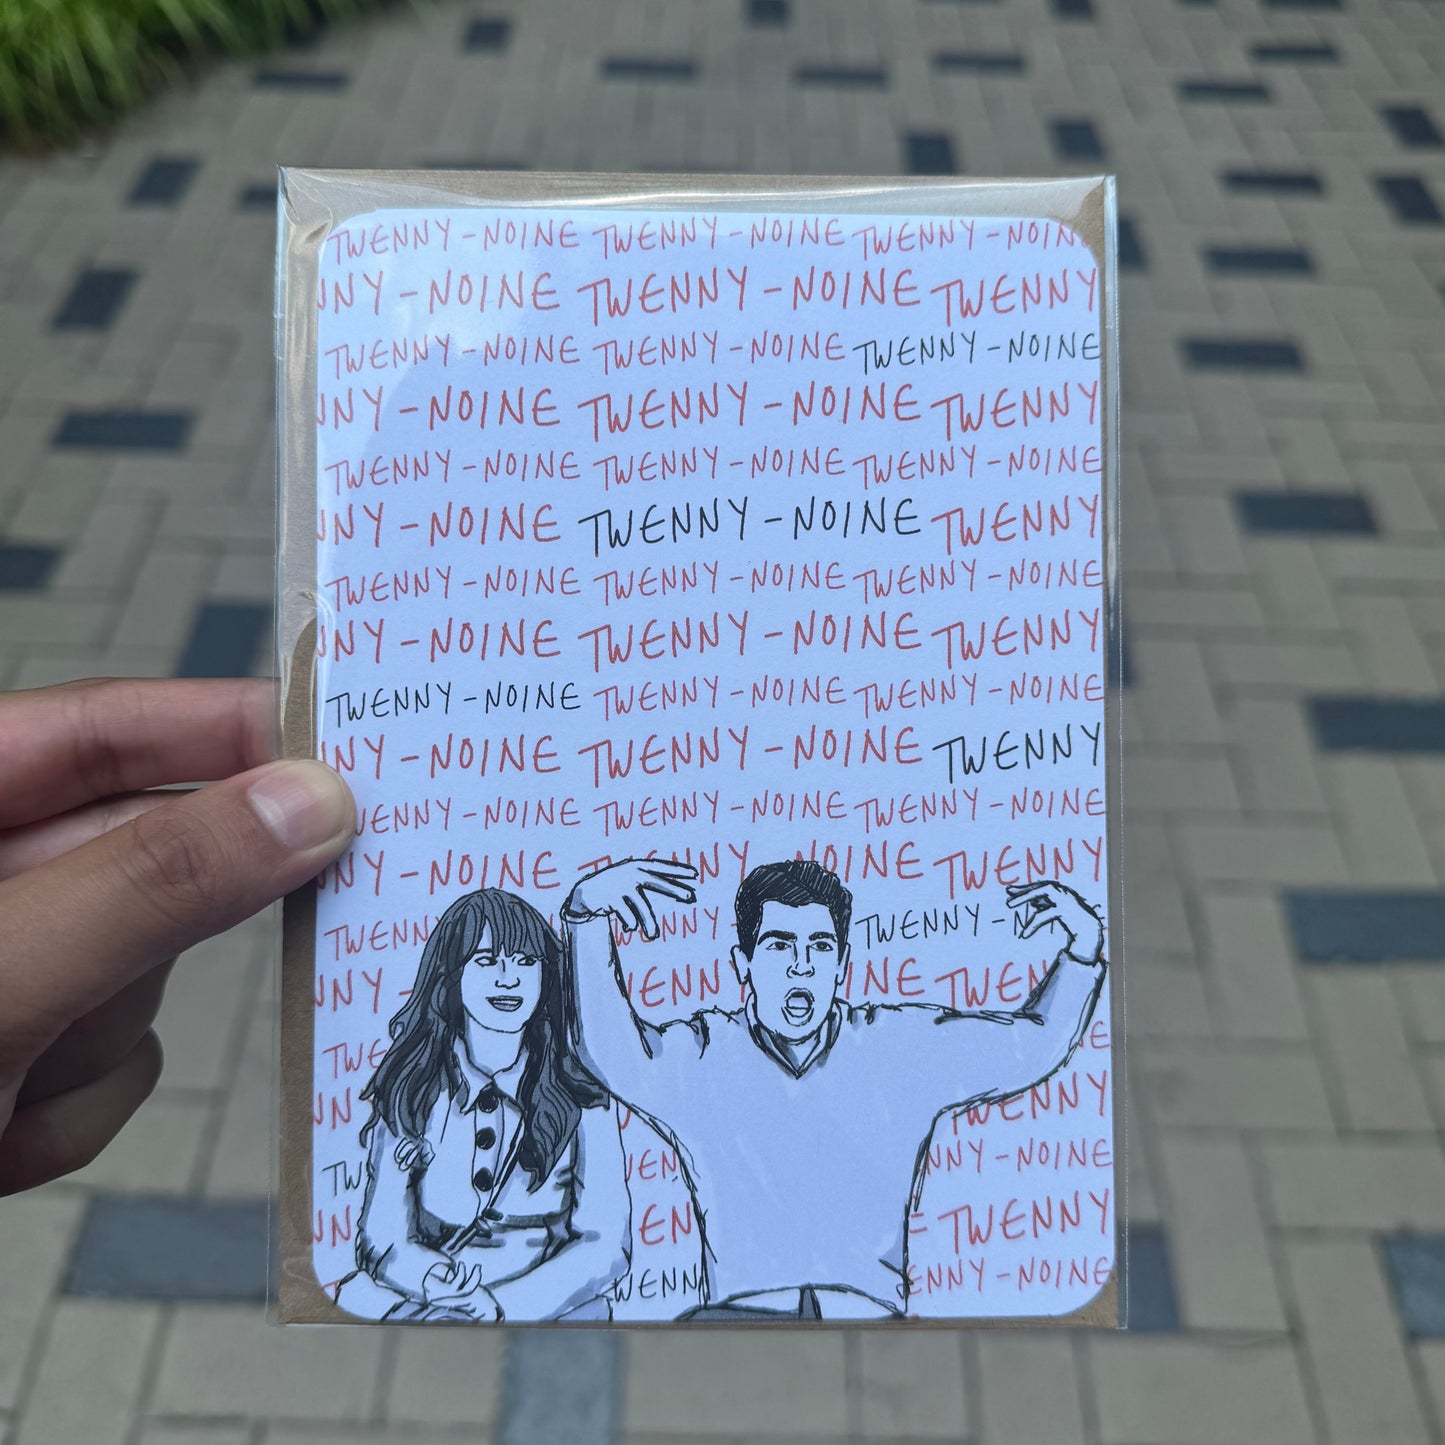 TWENNY-NOINE TWENNY-NOINE TWENNY-NOINE
NNY-NOINE TWENNY-NOINE TWENNY
TWENNY-NOINE TWENNY-NOINE TWENNY-NOINE
NNY-NOINE TWENNY-NOINE TWENNY
TWENNY-NOINE TWENNY-NOINE TWENNY-NOINE
NNY-NOINE TWENNY-NOINE TWENNY
TWENNY-NOINE TWENNY-NOINE TWENNY-NOINE
NNY-NOINE TWENNY-NOINE TWENNY
TWENNY-NOINE TWENNY-NOINE TWENNY-NOINE
NNY-NOINE TWENNY-NOINE TWENNY
WENNY-NOINE TWENNY-NOINE TWENNY-NOINE
NNY-NOINE TWENNY-NOINE TWENNY
TWENN WENNY TWENNY-NOINE
NNY- WENN INE TWEN
TWE NE
NN TWENNY
TW WEN NNY-NOINE
NN EN E TWENNY
T WENN ENNY-NOINE